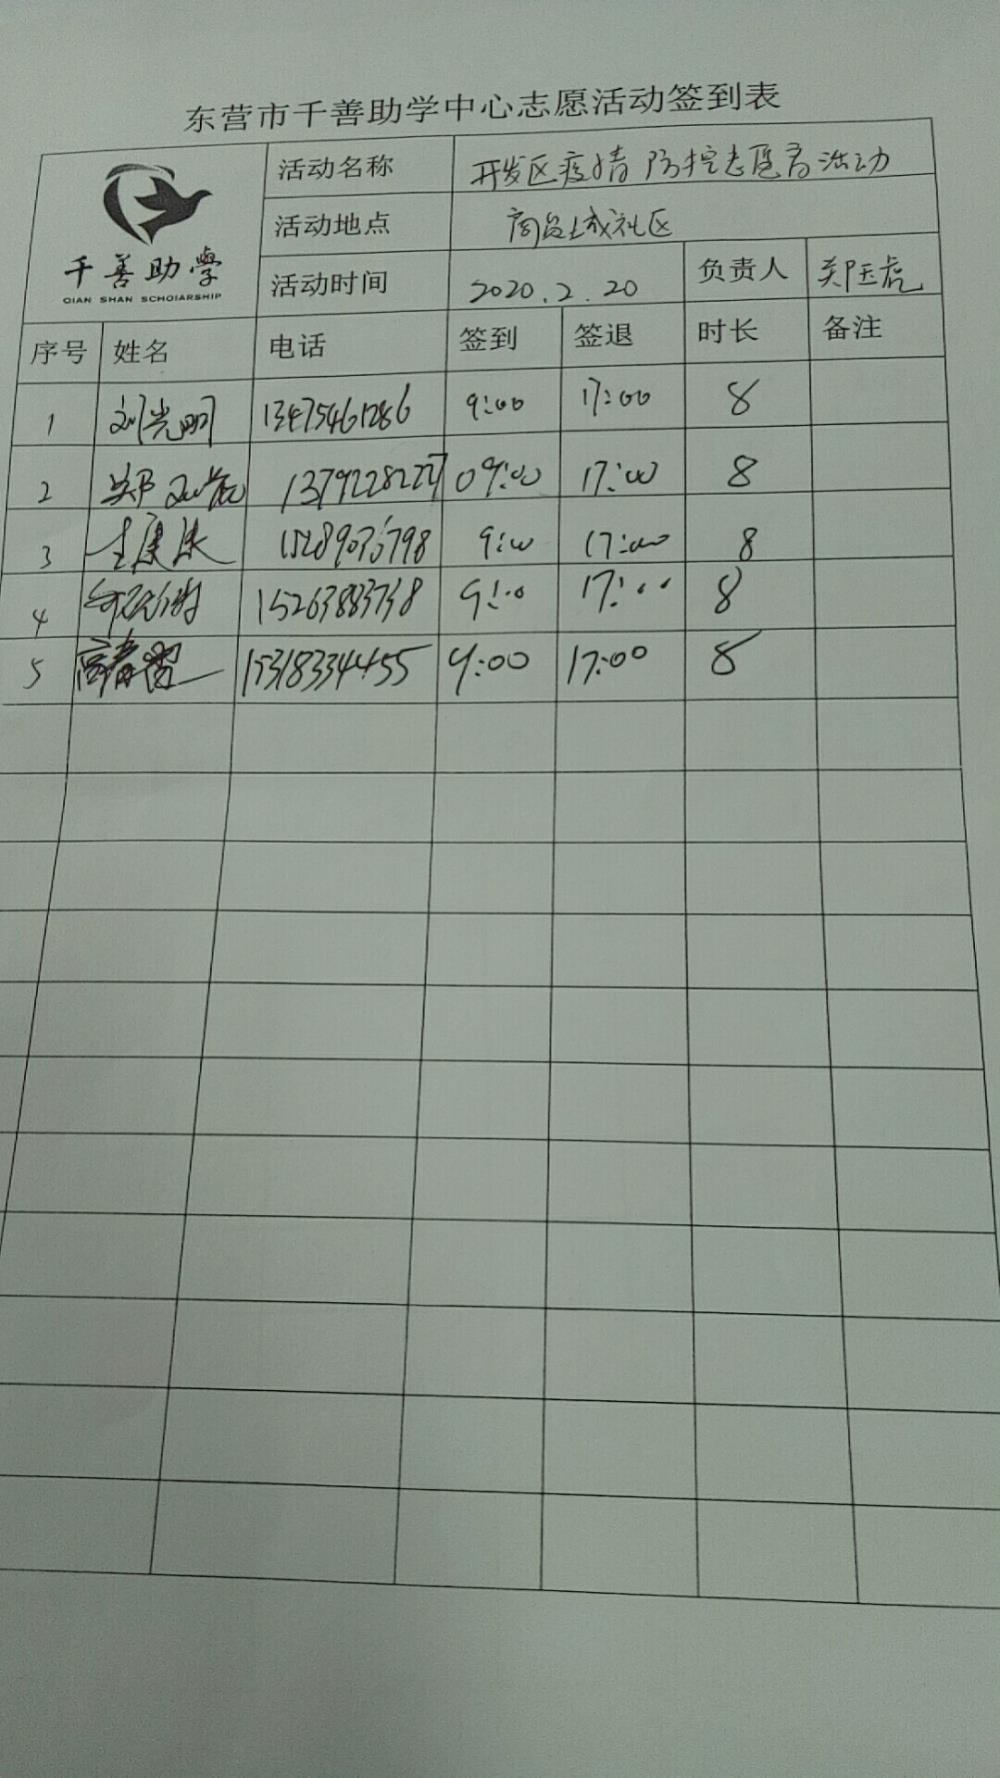 东营市千善助学中心志愿活动签到表
千善助學
QIAN SHAN SCHOIARSHIP
活动名称 开发区疫情防控志愿者活动
活动地点 商贸城社区
活动时间 2020.2.20 负责人 郑玉虎
序号 姓名 电话 签到 签退 时长 备注
1 刘光明 13475461286 9:00 17:00 8
2 郑玉虎 13792282227 09:00 17:00 8
3 9:00 17:00 8
4 15263883738 9:00 17:00 8
5 高春雷 15318334455 9:00 17:00 8